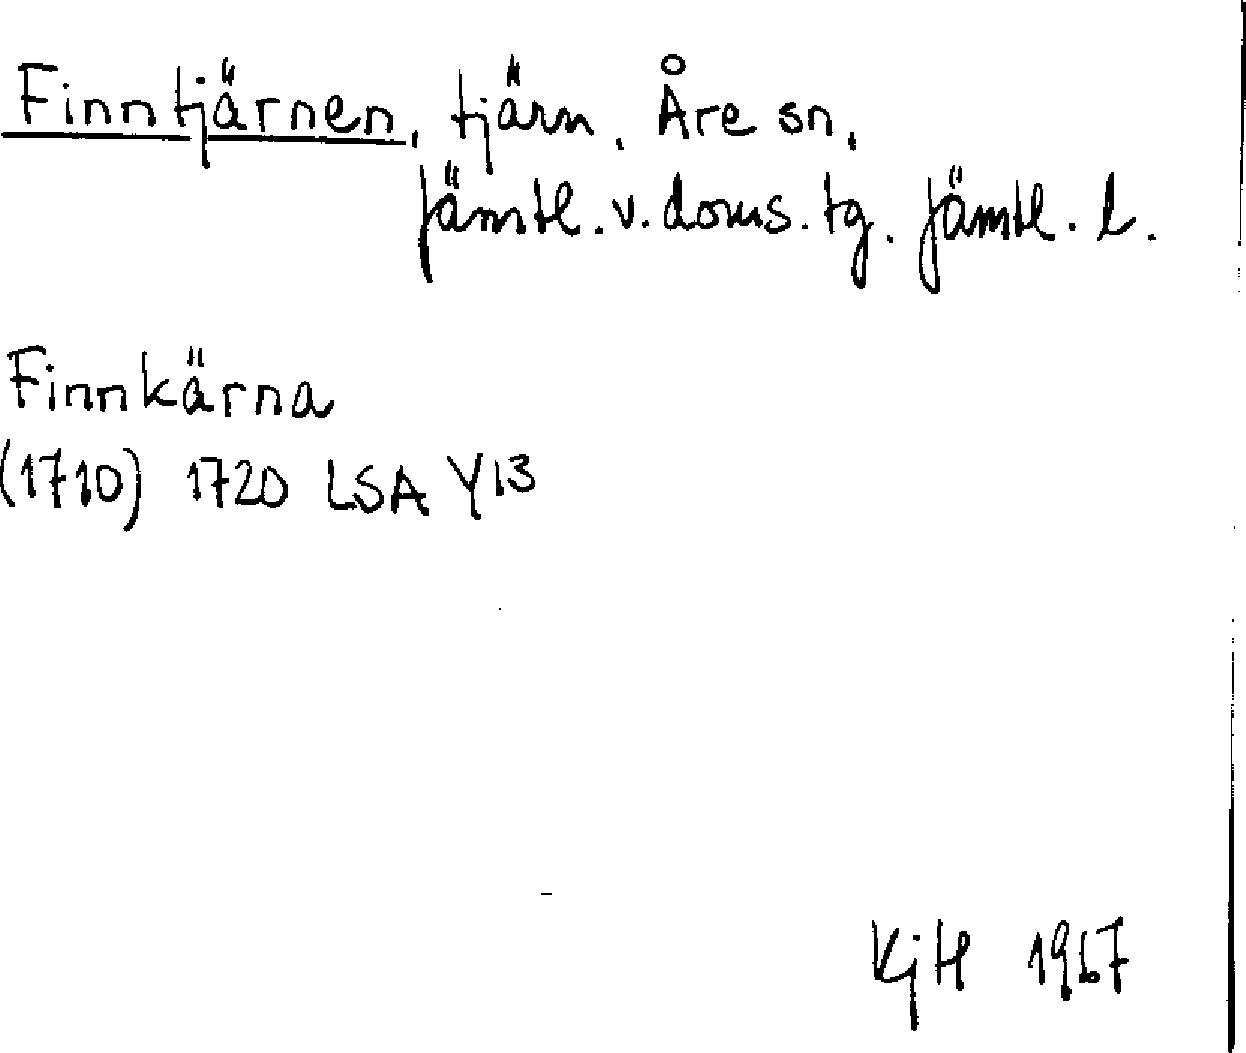 Finntjärnen, tjärn, Åre sn,
Jämtl. v. doms. tg. Jämtl. l.
Finnkärna
(1710) 1720 LSA Y13
KjH 1967